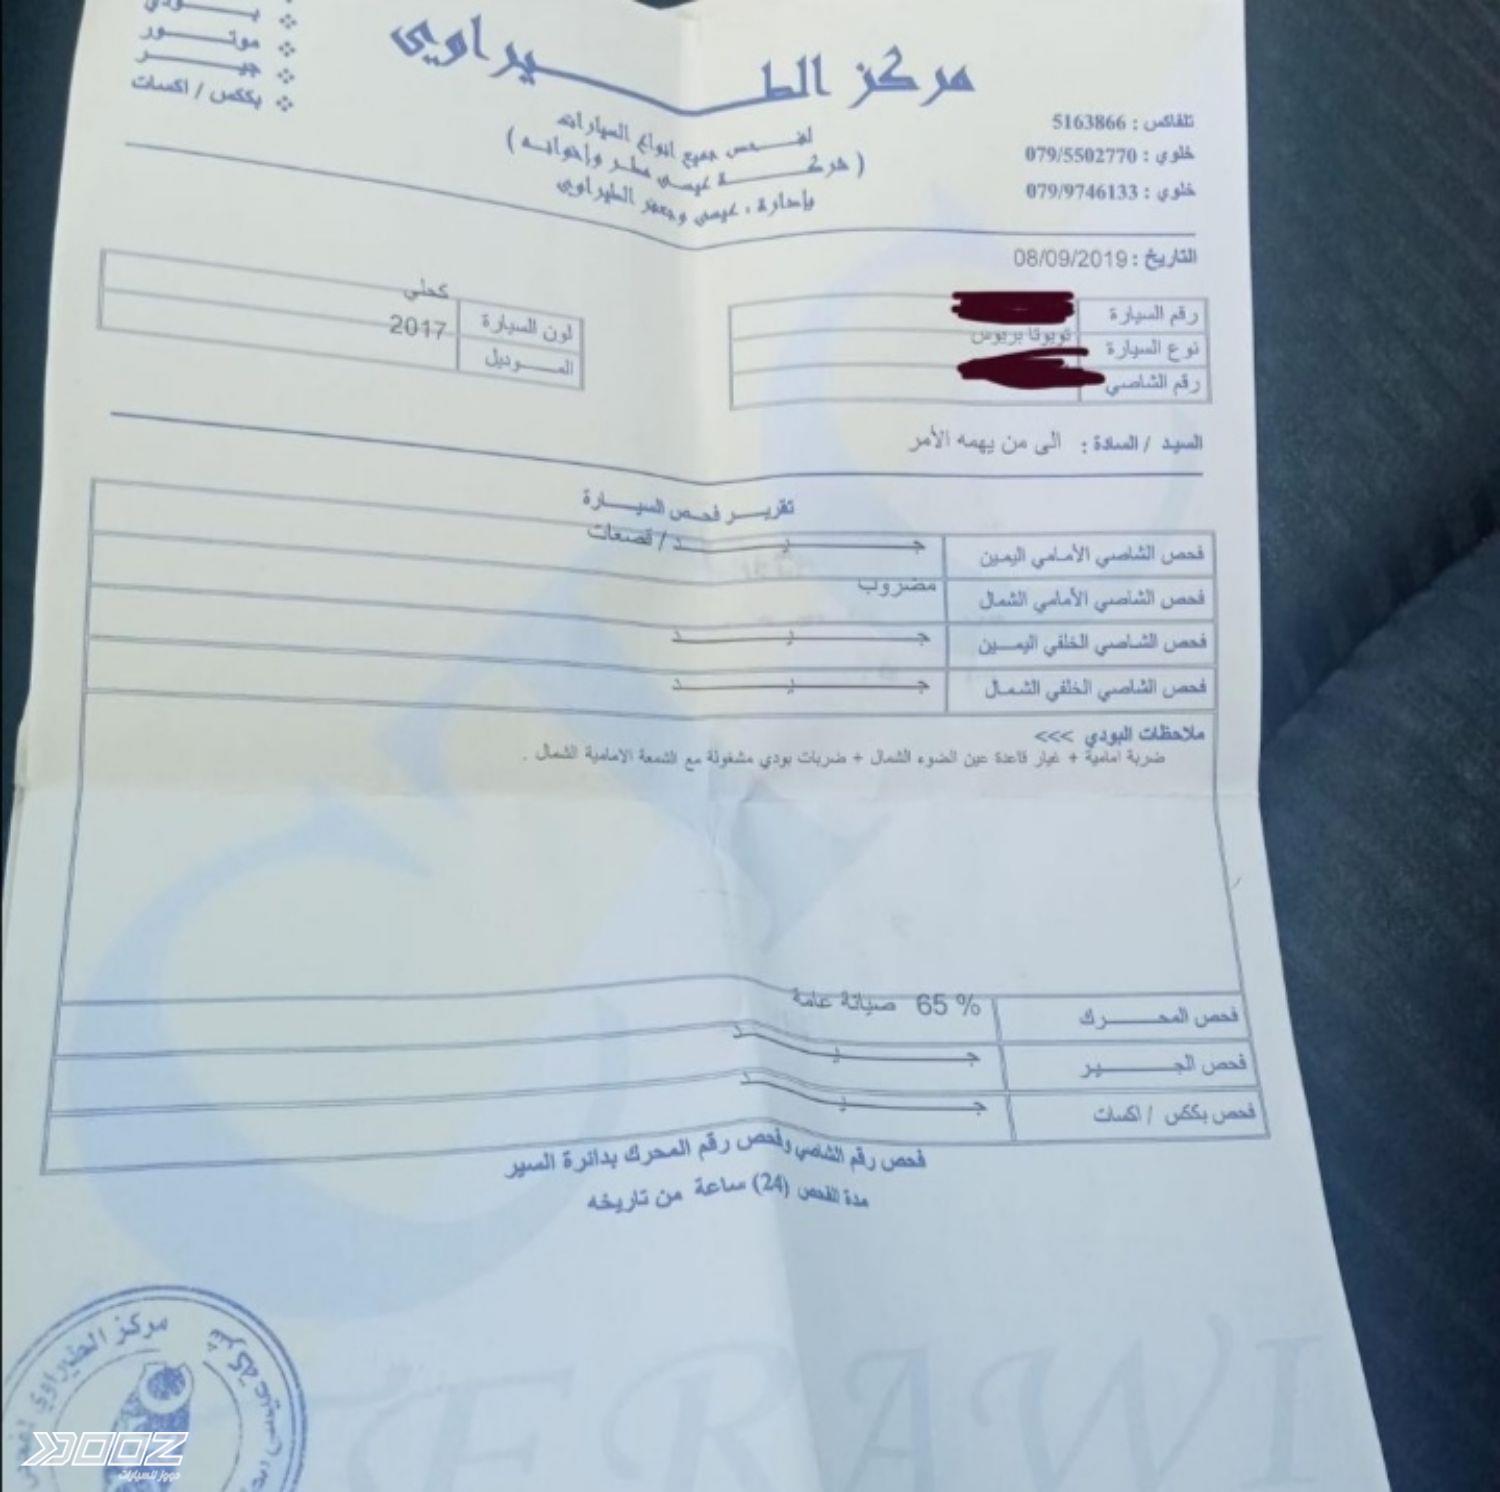 مركز الطيراوي
لفحص جميع انواع السيارات
( شركة عيسى مطر وإخوانه )
بإدارة : عيسى وجعفر الطيراوي
تلفاكس : 5163866
خلوي : 079/5502770
خلوي : 079/9746133
❖ بودي
❖ موتور
❖ جير
❖ بككس / اكسات
التاريخ : 08/09/2019
رقم السيارة
نوع السيارة تويوتا بريوس
رقم الشاصي
لون السيارة كحلي
الموديل 2017
السيد / السادة : الى من يهمه الأمر
تقرير فحص السيارة
فحص الشاصي الأمامي اليمين جيد / قصعات
فحص الشاصي الأمامي الشمال مضروب
فحص الشاصي الخلفي اليمين جيد
فحص الشاصي الخلفي الشمال جيد
ملاحظات البودي >>>
ضربة امامية + غيار قاعدة عين الضوء الشمال + ضربات بودي مشغولة مع الشمعة الامامية الشمال .
فحص المحرك 65 % صيانة عامة
فحص الجير جيد
فحص بككس / اكسات جيد
فحص رقم الشاصي وفحص رقم المحرك بدائرة السير
مدة الفحص (24) ساعة من تاريخه
مركز الطيراوي
ERAWI
DOOZ
دووز للسيارات